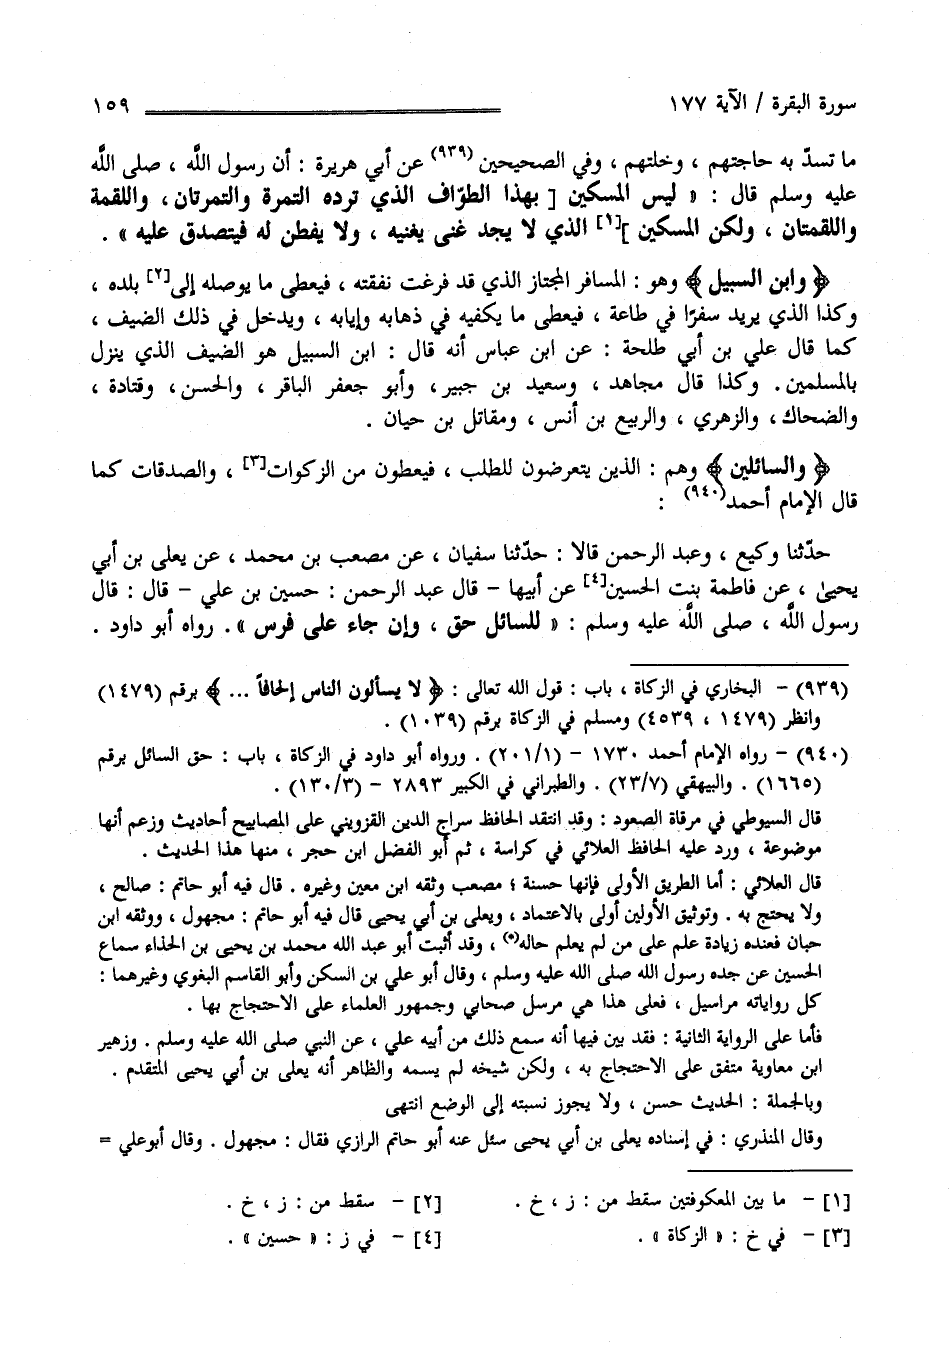 سورة البقرة / الآية ١٧٧ ١٥٩
ما تسدّ به حاجتهم ، وخلتهم ، وفي الصحيحين (٩٣٩) عن أبي هريرة : أن رسول اللَّه ، صلى اللَّه
عليه وسلم قال : « ليس المسكين [ بهذا الطوّاف الذي ترده التمرة والتمرتان ، واللقمة
واللقمتان ، ولكن المسكين ][١] الذي لا يجد غنى يغنيه ، ولا يفطن له فيتصدق عليه » .
﴿ وابن السبيل ﴾ وهو : المسافر المجتاز الذي قد فرغت نفقته ، فيعطى ما يوصله إلى[٢] بلده ،
وكذا الذي يريد سفرًا في طاعة ، فيعطى ما يكفيه في ذهابه وإيابه ، ويدخل في ذلك الضيف ،
كما قال علي بن أبي طلحة : عن ابن عباس أنه قال : ابن السبيل هو الضيف الذي ينزل
بالمسلمين. وكذا قال مجاهد ، وسعيد بن جبير، وأبو جعفر الباقر ، والحسن، وقتادة ،
والضحاك، والزهري ، والربيع بن أنس ، ومقاتل بن حيان .
﴿ والسائلين ﴾ وهم : الذين يتعرضون للطلب ، فيعطون من الزكوات[٣] ، والصدقات كما
قال الإمام أحمد(٩٤٠) :
حدّثنا وكيع ، وعبد الرحمن قالا : حدّثنا سفيان ، عن مصعب بن محمد ، عن يعلى بن أبي
يحيىٰ ، عن فاطمة بنت الحسين[٤] عن أبيها – قال عبد الرحمن : حسين بن علي – قال : قال
رسول اللَّه ، صلى اللَّه عليه وسلم : « للسائل حق ، وإن جاء على فرس ». رواه أبو داود .
(٩٣٩) – البخاري في الزكاة ، باب : قول الله تعالى : ﴿ لا يسألون الناس إلحافاً ... ﴾ برقم (١٤٧٩)
وانظر (١٤٧٩ ، ٤٥٣٩) ومسلم في الزكاة برقم (١٠٣٩) .
(٩٤٠) – رواه الإمام أحمد ١٧٣٠ – (٢٠١/١) . ورواه أبو داود في الزكاة ، باب : حق السائل برقم
(١٦٦٥) . والبيهقي (٢٣/٧) . والطبراني في الكبير ٢٨٩٣ – (١٣٠/٣) .
قال السيوطي في مرقاة الصعود : وقد انتقد الحافظ سراج الدين القزويني على المصابيح أحاديث وزعم أنها
موضوعة ، ورد عليه الحافظ العلائي في كراسة ، ثم أبو الفضل ابن حجر ، منها هذا الحديث .
قال العلائي : أما الطريق الأولى فإنها حسنة ؛ مصعب وثقه ابن معين وغيره . قال فيه أبو حاتم : صالح ،
ولا يحتج به . وتوثيق الأولين أولى بالاعتماد ، ويعلى بن أبي يحيى قال فيه أبو حاتم : مجهول ، ووثقه ابن
حبان فعنده زيادة علم على من لم يعلم حاله(*) ، وقد أثبت أبو عبد الله محمد بن يحيى بن الحذاء سماع
الحسين عن جده رسول الله صلى الله عليه وسلم ، وقال أبو علي بن السكن وأبو القاسم البغوي وغيرهما :
كل رواياته مراسيل ، فعلى هذا هي مرسل صحابي وجمهور العلماء على الاحتجاج بها .
فأما على الرواية الثانية : فقد بين فيها أنه سمع ذلك من أبيه علي ، عن النبي صلى الله عليه وسلم . وزهير
ابن معاوية متفق على الاحتجاج به ، ولكن شيخه لم يسمه والظاهر أنه يعلى بن أبي يحيى المتقدم .
وبالجملة : الحديث حسن ، ولا يجوز نسبته إلى الوضع انتهى
وقال المنذري : في إسناده يعلى بن أبي يحيى سئل عنه أبو حاتم الرازي فقال : مجهول . وقال أبوعلي =
[١] – ما بين المعكوفتين سقط من : ز ، خ . [٢] – سقط من : ز ، خ .
[٣] – في خ : « الزكاة » . [٤] – في ز : « حسين » .